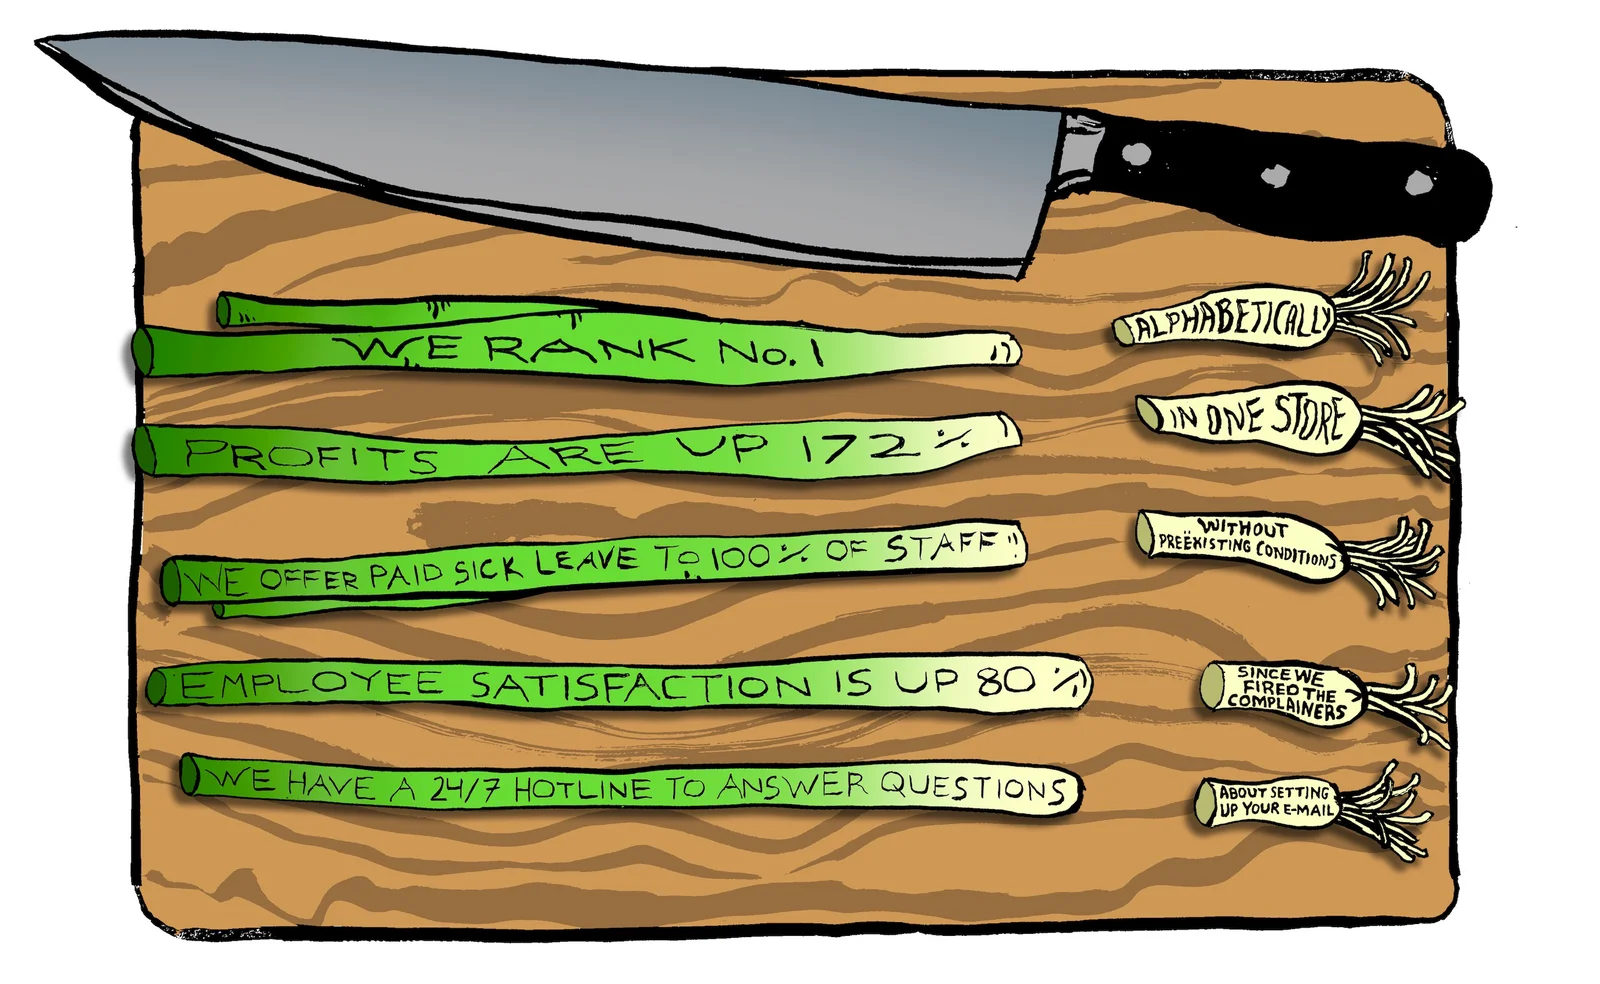 WE RANK No. 1
ALPHABETICALLY
PROFITS ARE UP 172%
IN ONE STORE
WE OFFER PAID SICK LEAVE TO 100% OF STAFF
WITHOUT
PREËXISTING CONDITIONS
EMPLOYEE SATISFACTION IS UP 80%
SINCE WE
FIRED THE
COMPLAINERS
WE HAVE A 24/7 HOTLINE TO ANSWER QUESTIONS
ABOUT SETTING
UP YOUR E-MAIL